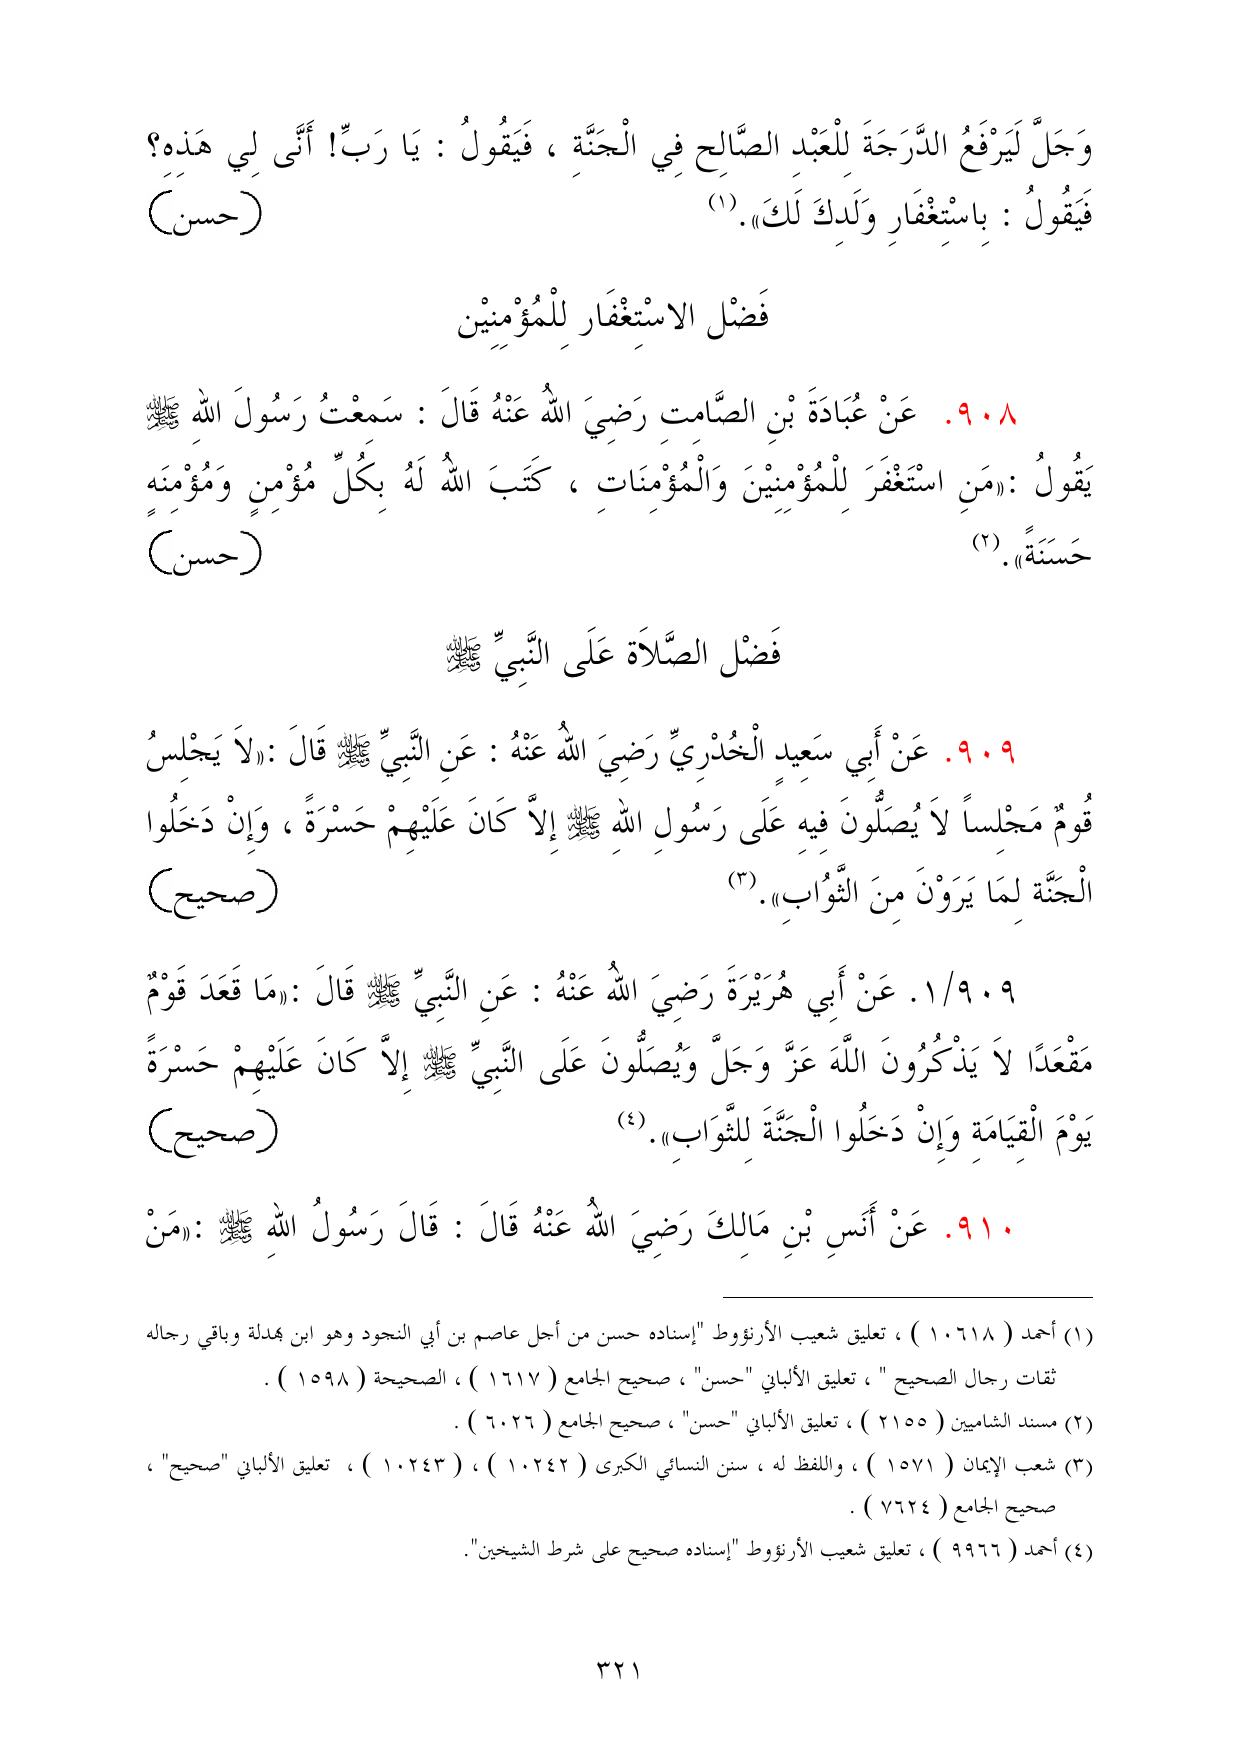 وَجَلَّ لَيَرْفَعُ الدَّرَجَةَ لِلْعَبْدِ الصَّالِحِ فِي الْجَنَّةِ ، فَيَقُولُ : يَا رَبِّ! أَنَّى لِي هَذِهِ؟
فَيَقُولُ : بِاسْتِغْفَارِ وَلَدِكَ لَكَ». (١) (حسن)
فَضْل الاسْتِغْفَار لِلْمُؤْمِنِيْن
٩٠٨. عَنْ عُبَادَةَ بْنِ الصَّامِتِ رَضِيَ اللهُ عَنْهُ قَالَ : سَمِعْتُ رَسُولَ اللهِ ﷺ
يَقُولُ :«مَنِ اسْتَغْفَرَ لِلْمُؤْمِنِيْنَ وَالْمُؤْمِنَاتِ ، كَتَبَ اللهُ لَهُ بِكُلِّ مُؤْمِنٍ وَمُؤْمِنَهٍ
حَسَنَةً». (٢) (حسن)
فَضْل الصَّلاَة عَلَى النَّبِيِّ ﷺ
٩٠٩. عَنْ أَبِي سَعِيدٍ الْخُدْرِيِّ رَضِيَ اللهُ عَنْهُ : عَنِ النَّبِيِّ ﷺ قَالَ :«لاَ يَجْلِسُ
قُومٌ مَجْلِساً لاَ يُصَلُّونَ فِيهِ عَلَى رَسُولِ اللهِ ﷺ إِلاَّ كَانَ عَلَيْهِمْ حَسْرَةً ، وَإِنْ دَخَلُوا
الْجَنَّة لِمَا يَرَوْنَ مِنَ الثَّوُابِ». (٣) (صحيح)
١/٩٠٩. عَنْ أَبِي هُرَيْرَةَ رَضِيَ اللهُ عَنْهُ : عَنِ النَّبِيِّ ﷺ قَالَ :«مَا قَعَدَ قَوْمٌ
مَقْعَدًا لاَ يَذْكُرُونَ اللَّهَ عَزَّ وَجَلَّ وَيُصَلُّونَ عَلَى النَّبِيِّ ﷺ إِلاَّ كَانَ عَلَيْهِمْ حَسْرَةً
يَوْمَ الْقِيَامَةِ وَإِنْ دَخَلُوا الْجَنَّةَ لِلثَّوَابِ». (٤) (صحيح)
٩١٠. عَنْ أَنَسِ بْنِ مَالِكَ رَضِيَ اللهُ عَنْهُ قَالَ : قَالَ رَسُولُ اللهِ ﷺ :«مَنْ
(١) أحمد ( ١٠٦١٨ ) ، تعليق شعيب الأرنؤوط "إسناده حسن من أجل عاصم بن أبي النجود وهو ابن بهدلة وباقي رجاله
ثقات رجال الصحيح " ، تعليق الألباني "حسن" ، صحيح الجامع ( ١٦١٧ ) ، الصحيحة ( ١٥٩٨ ) .
(٢) مسند الشاميين ( ٢١٥٥ ) ، تعليق الألباني "حسن" ، صحيح الجامع ( ٦٠٢٦ ) .
(٣) شعب الإيمان ( ١٥٧١ ) ، واللفظ له ، سنن النسائي الكبرى ( ١٠٢٤٢ ) ، ( ١٠٢٤٣ ) ، تعليق الألباني "صحيح" ،
صحيح الجامع ( ٧٦٢٤ ) .
(٤) أحمد ( ٩٩٦٦ ) ، تعليق شعيب الأرنؤوط "إسناده صحيح على شرط الشيخين".
٣٢١